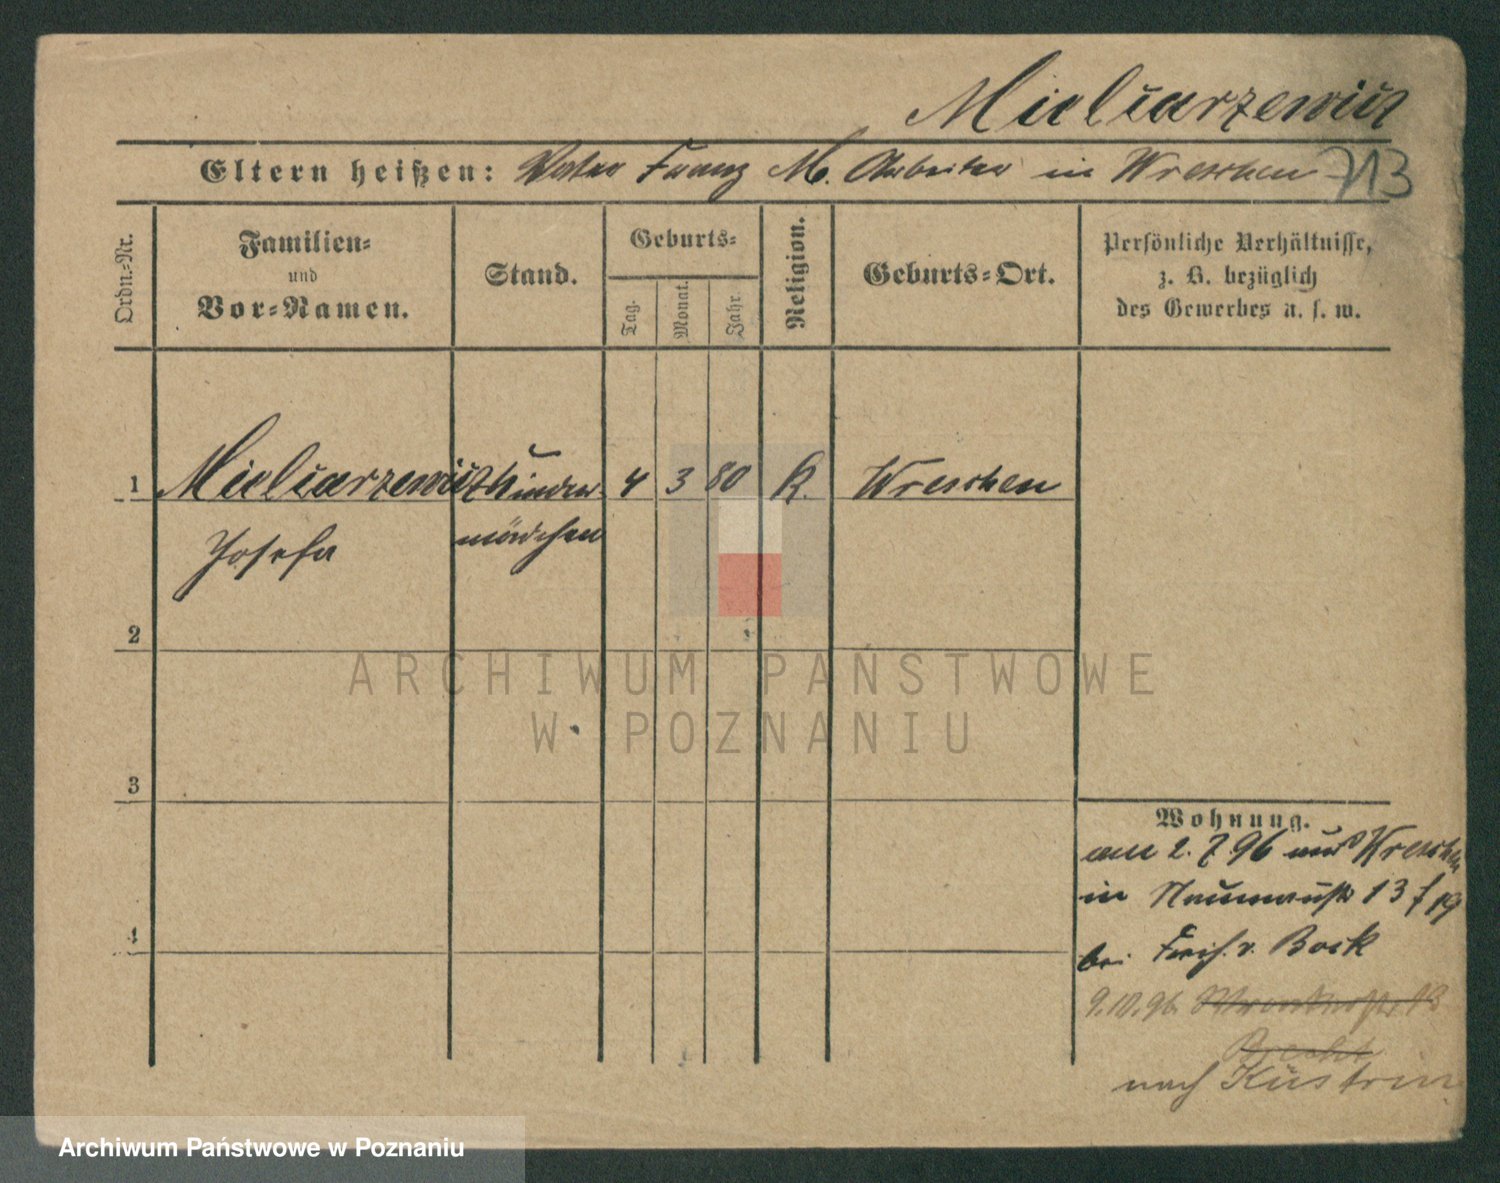 Mielcarzewicz
Eltern heißen: Vater Franz M. Arbeiter in Wreschen
713
Ordn.-Nr.
Familien-
und
Vor-Namen.
Stand.
Geburts-
Tag.
Monat.
Jahr.
Religion.
Geburts-Ort.
Persönliche Verhältnisse,
z. B. bezüglich
des Gewerbes u. s. w.
1 Mielcarzewicz Kinder- 4 3 80 K. Wreschen
Josefa mädchen
2
3
4
ARCHIWUM PAŃSTWOWE
W POZNANIU
Wohnung.
am 2. 7. 96 aus Wreschen
in Naumannstr 13 / 19
bei v. Bock
9.10.96.
nach Küstrin
Archiwum Państwowe w Poznaniu